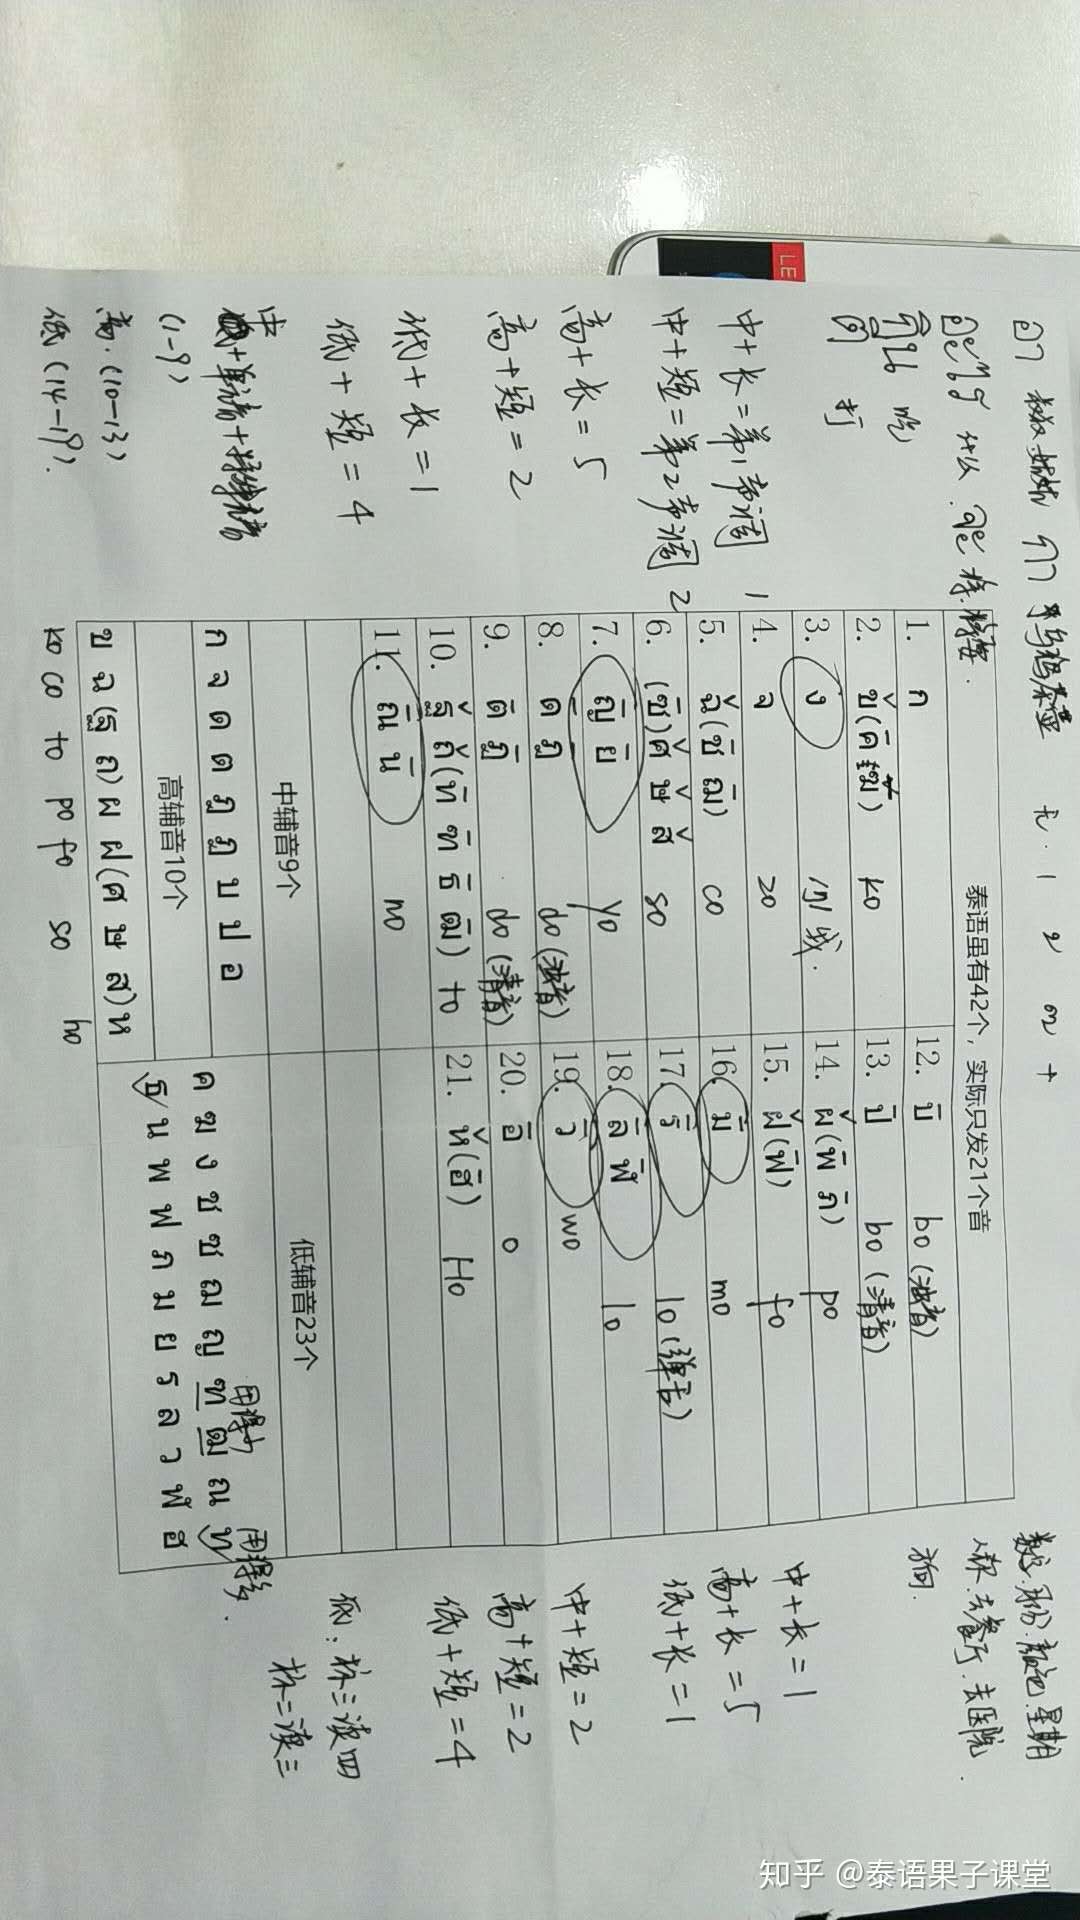 无 1 2 3 +
什么
กิน 吃
打
中+长=第1声调 1
中+短=第2声调 2
高+长=5
高+短=2
低+长=1
低+短=4
(1-9)
高.(10-13)
低(14-19).
泰语里有42个，实际只发21个音
1. ก
2. ข(ค ฆ) ko
3. ง
4. จ zo
5. ฉ(ช ฌ) co
6. (ซ)ศ ษ ส so
7. ญ ย yo
8. ด ฎ do(浊音)
9. ต ฏ do(清音)
10. ฐ ถ(ท ฑ ธ ฒ) to
11. ณ น no
12. บ bo(浊音)
13. ป bo(清音)
14. ผ(พ ภ) po
15. ฝ(ฟ) fo
16. ม mo
17. ร lo(弹舌)
18. ล ฬ lo
19. ว wo
20. อ o
21. ห(ฮ) Ho
中辅音9个
ก จ ด ต ฎ ฏ บ ป อ
高辅音10个
ข ฉ(ฐ ถ)ผ ฝ(ศ ษ ส)ห
ko co to po fo so ho
低辅音23个
用得少
用得多.
ค ฆ ง ช ซ ฌ ญ ฑ ฒ ณ ท
ธ น พ ฟ ภ ม ย ร ล ว ฬ ฮ
颜色.星期
去餐厅.去医院.
中+长=1
高+长=5
低+长=1
中+短=2
高+短=2
低+短=4
低:标三读四
标二读三
LE
知乎 @泰语果子课堂